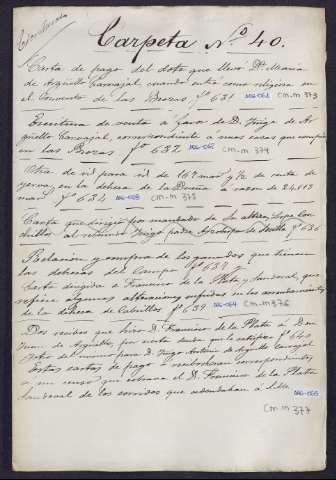 Carpeta N.º 40.
Carta de pago del dote que llevó D.ª María
de Argüello Carvajal cuando entró como religiosa en
el Convento de las Brozas fº 631 cm.m 373
Escritura de venta á favor de D. Iñigo de Ar
güello Carvajal, correspondiente á unas casas que compró
en las Brozas fº 632 cm.m 374
Otra de id para id de 162 mar.s y ½ de renta de
yerva, en la dehesa de la a razon de 24.113
mar.s fº 634 cm.m 375
Carta que dirigió por mandado de Su alteza, Lope Con
chillos al padre Arzobispo de Sevilla fº 636
Relación y compra de los ganados que tienen
las dehesas del Campo fº 637
Carta dirigida a Francisco de la Plata y Sandoval, que
refiere algunas alteraciones sufridas en los arrendamientos
de la dehesa de Cabrillas fº 639 cm.m 376
Dos recibos que hizo D. Francisco de la Plata a Don
Juan de Argüello, por renta
Otro del mismo para D. Iñigo Antonio de Argüello Carvajal
Estas cartas de pago ó recibos eran correspondientes
a un censo que cobrava el D. Francisco de la Plata
Sandoval de los corridos que adeudaban á
cm.m 377